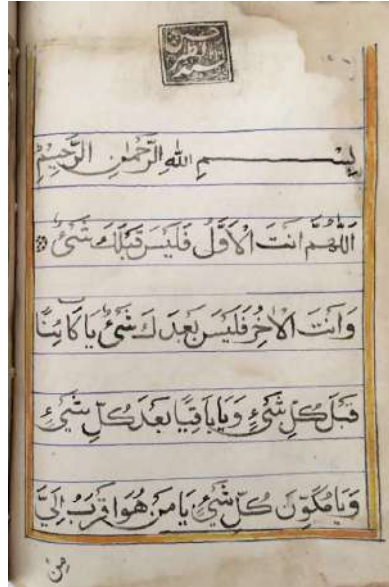 بِسْــــــمِ اللهِ الرَّحْمٰنِ الرَّحِيْمِ
اَللّٰهُمَّ اَنْتَ الْاَوَّلُ فَلَيْسَ قَبْلَكَ شَیْءٌ
وَاَنْتَ الْاٰخِرُ فَلَيْسَ بَعْدَكَ شَیْءٌ يَا كَائِنًا
قَبْلَ كُلِّ شَیْءٍ وَيَا بَاقِيًا بَعْدَ كُلِّ شَیْءٍ
وَيَا مُكَوِّنَ كُلِّ شَیْءٍ يَا مَنْ هُوَ اَقْرَبُ اِلَيَّ
مِنْ